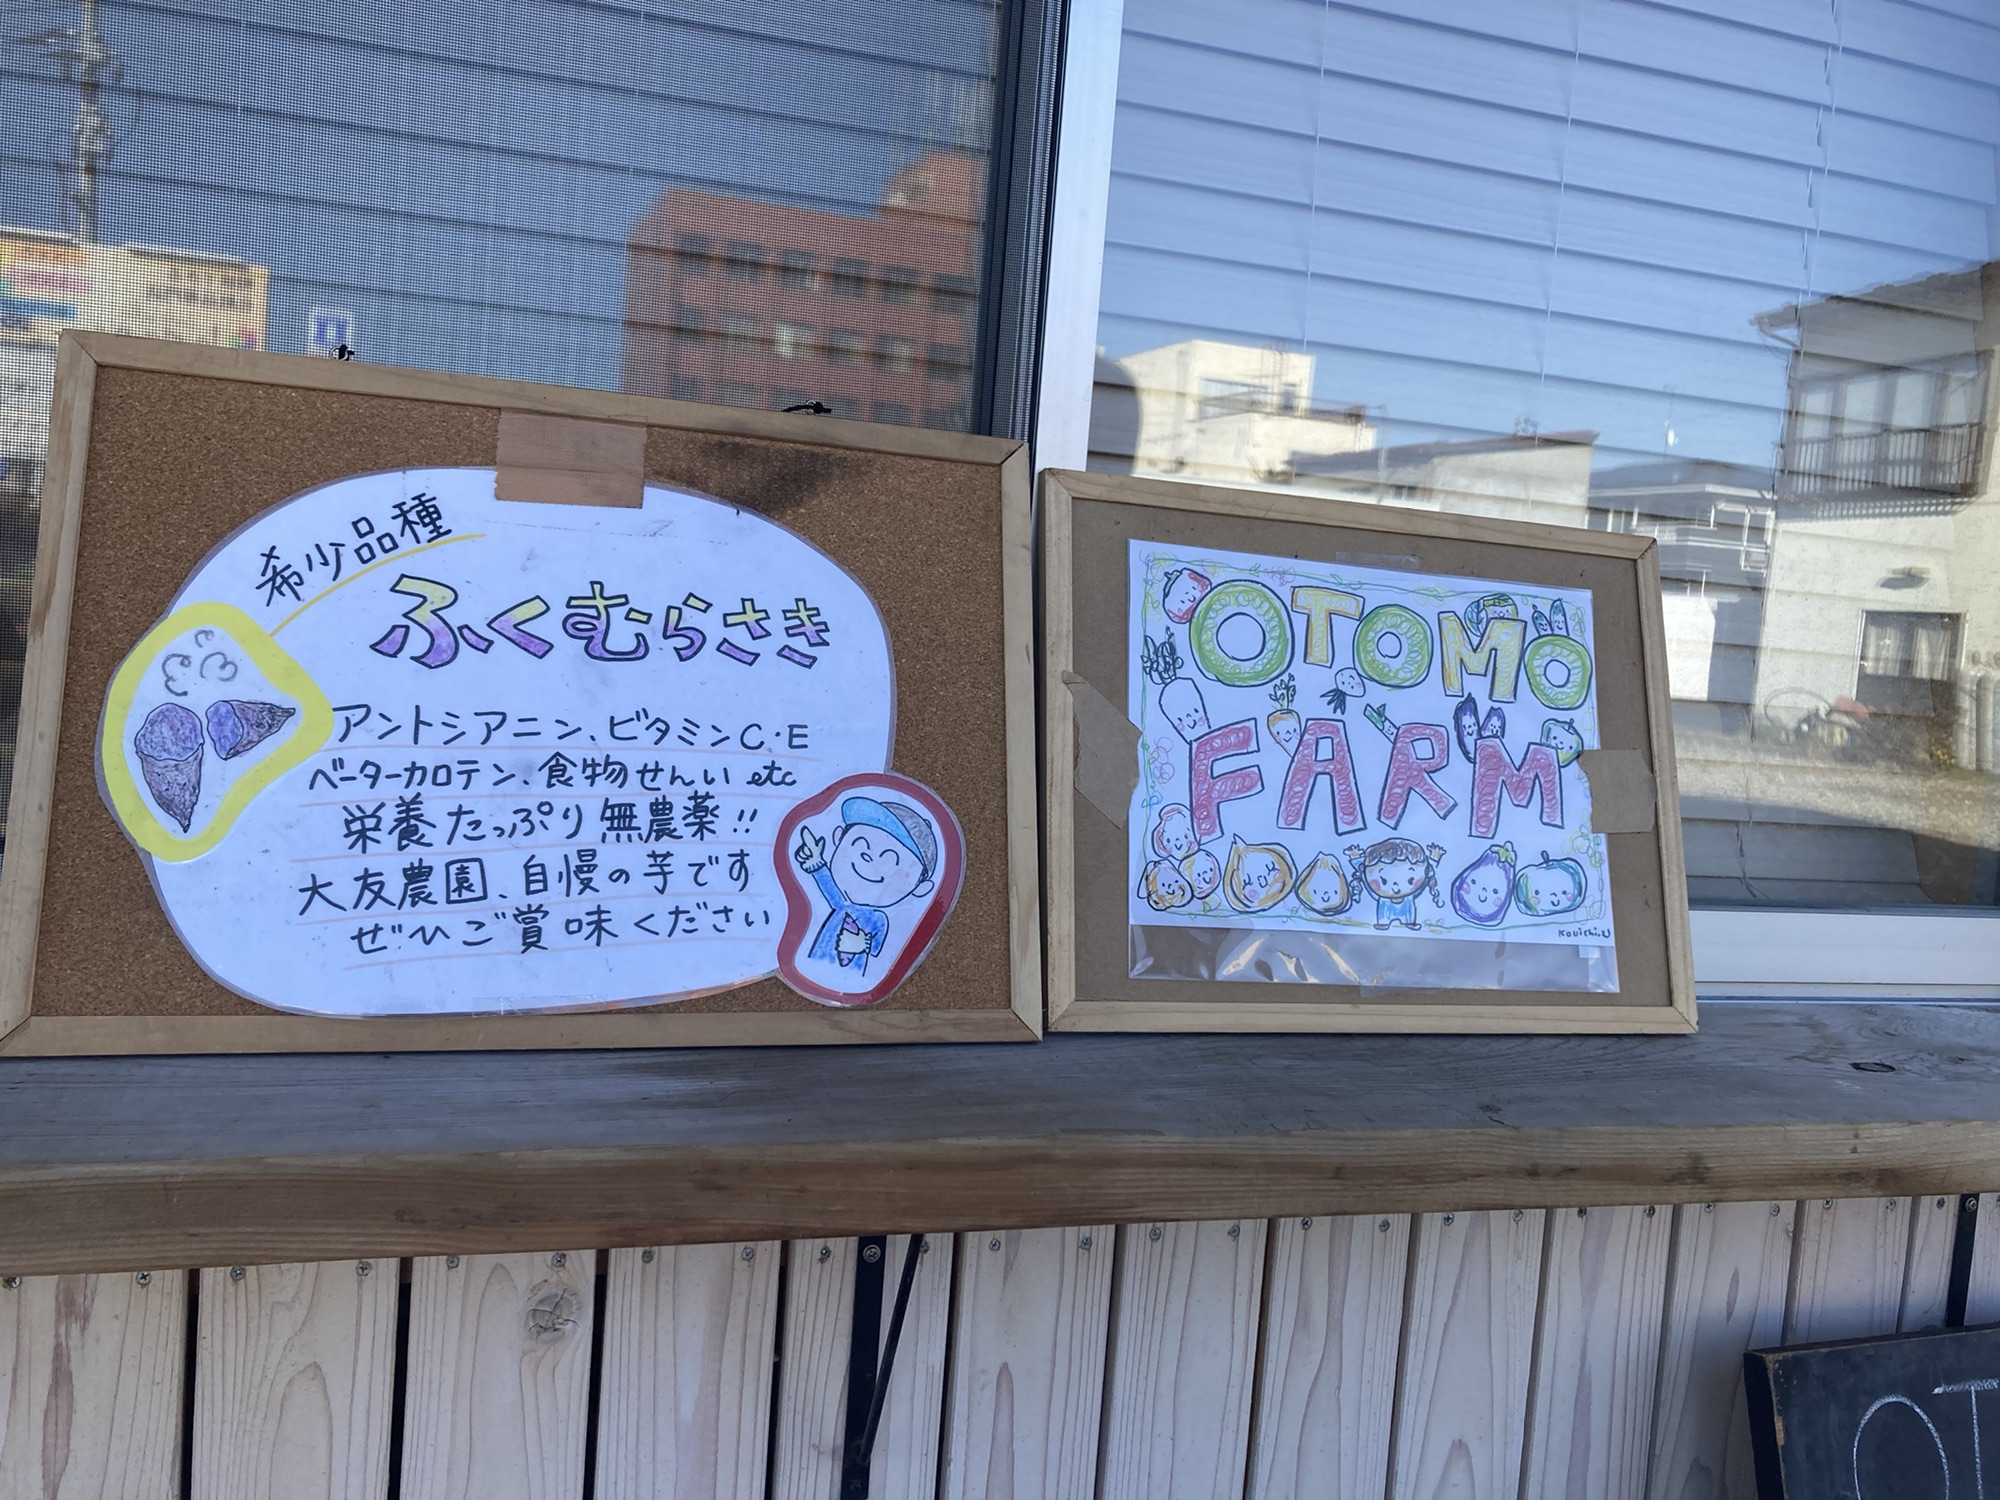 希少品種
ふくむらさき
アントシアニン、ビタミンC・E
ベーターカロテン、食物せんい etc
栄養たっぷり無農薬!!
大友農園、自慢の芋です
ぜひご賞味ください
OTOMO
FARM
Kouichi.U
OT